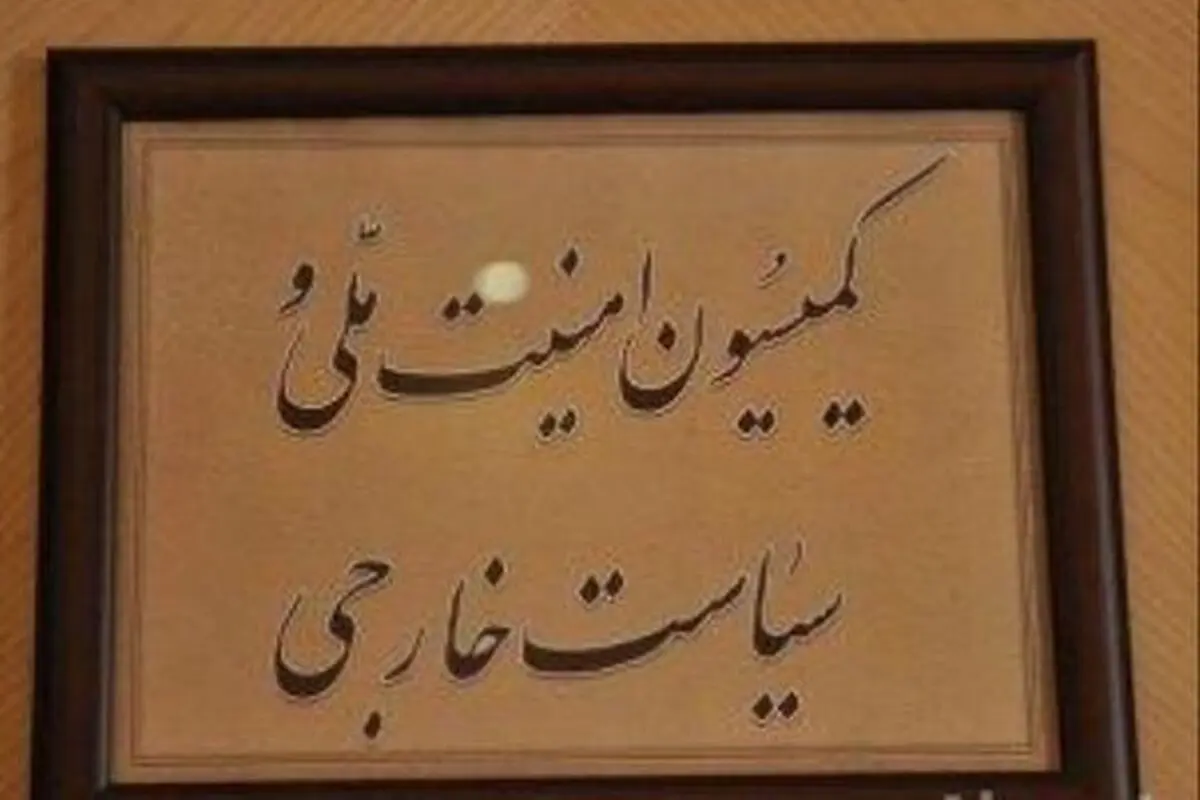 کمیسیون امنیت ملّی و
سیاست خارجی